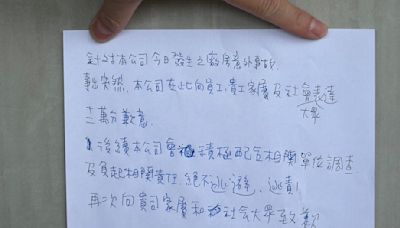 針對本公司今日發生之廠房意外事故,
事出突然,本公司在此向員工,員工家屬及社會表達
大眾
十二萬分歉意.
後續本公司會積極配合相關單位調查
及負起相關責任,絕不逃避、逃責!
再次向員司家屬和社會大眾致歉